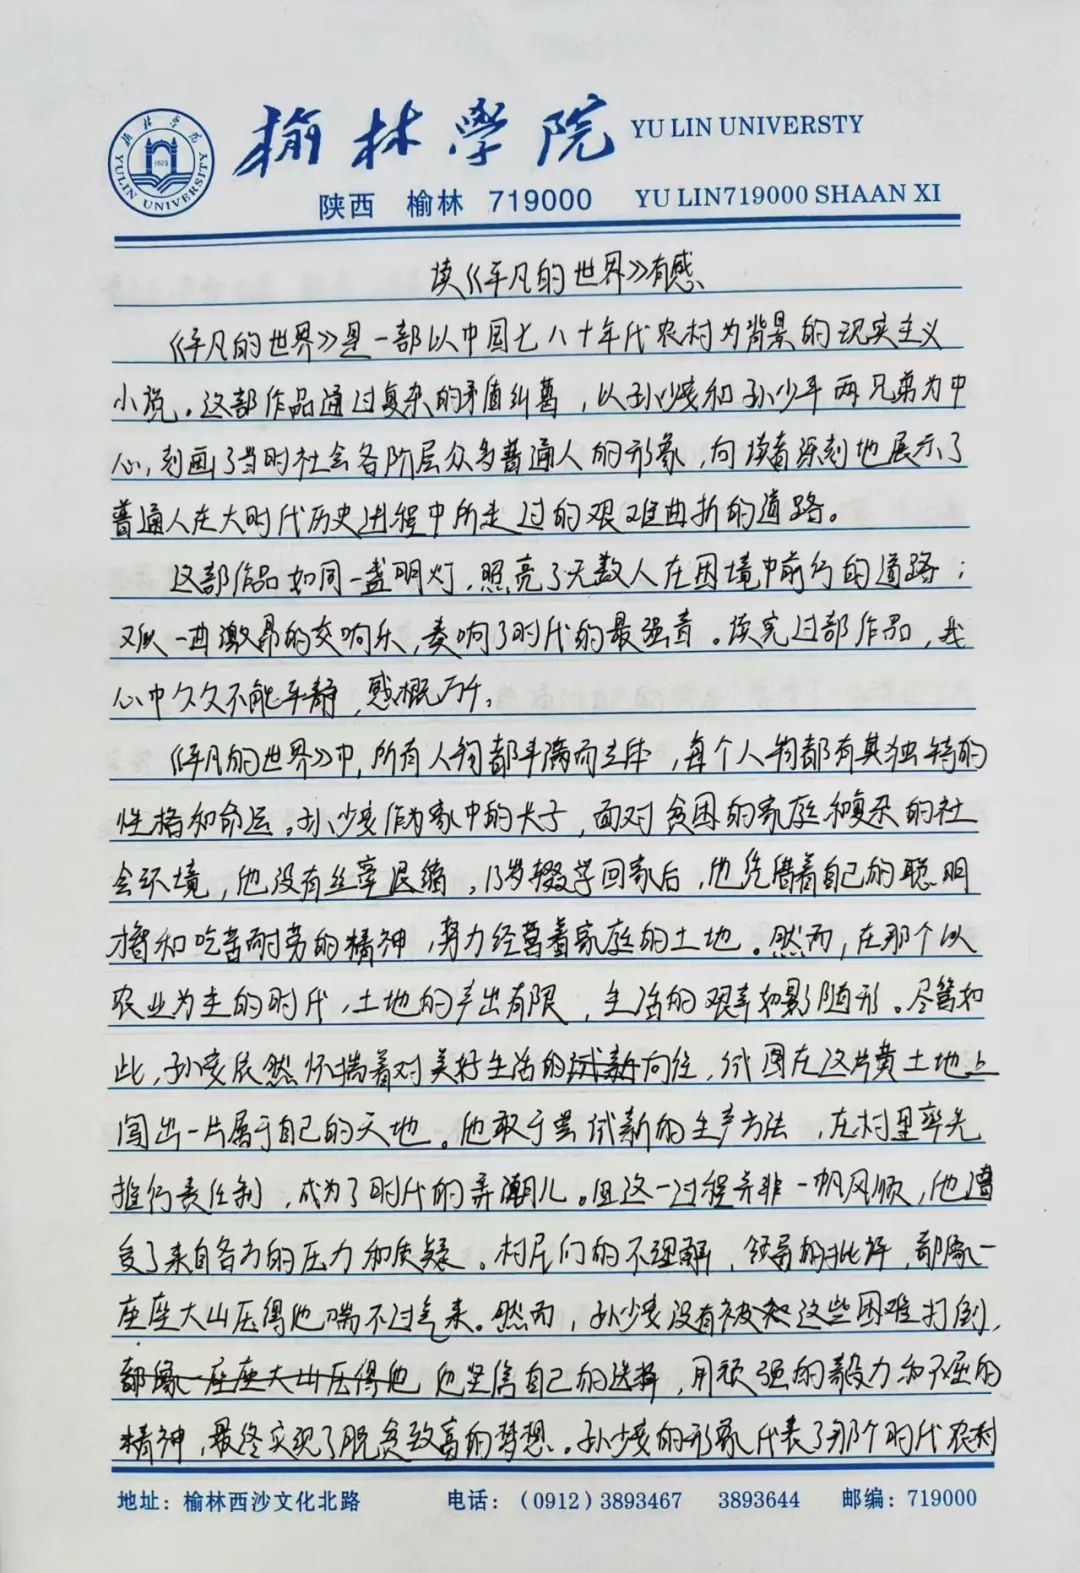 榆林学院 YU LIN UNIVERSTY
YULIN UNIVERSITY
1923
陕西 榆林 719000 YU LIN719000 SHAAN XI
读《平凡的世界》有感
《平凡的世界》是一部以中国七八十年代农村为背景的现实主义
小说。这部作品通过复杂的矛盾纠葛，以孙少安和孙少平两兄弟为中
心，刻画了当时社会各阶层众多普通人的形象，向读者深刻地展示了
普通人在大时代历史进程中所走过的艰难曲折的道路。
这部作品如同一盏明灯，照亮了无数人在困境中前行的道路；
又似一曲激昂的交响乐，奏响了时代的最强音。读完这部作品，我
心中久久不能平静，感概万千。
《平凡的世界》中，所有人物都丰满而立体，每个人物都有其独特的
性格和命运。孙少安作为家中的长子，面对贫困的家庭和复杂的社
会环境，他没有丝毫退缩，13岁辍学回家后，他凭借着自己的聪明
才智和吃苦耐劳的精神，努力经营着家庭的土地。然而，在那个以
农业为主的时代，土地的产出有限，生活的艰辛如影随形。尽管如
此，孙安依然怀揣着对美好生活的试新向往，试图在这片黄土地上
闯出一片属于自己的天地。他敢于尝试新的生产方法，在村里率先
推行责任制，成为了时代的弄潮儿。但这一过程并非一帆风顺，他遭
受了来自各方的压力和质疑。村民们的不理解，领导的批评，都像一
座座大山压得他喘不过气来。然而，孙少安没有被这些困难打倒，
都像一座座大山压得他 他坚信自己的选择，用顽强的毅力和不屈的
精神，最终实现了脱贫致富的梦想。孙少安的形象代表了那个时代农村
地址：榆林西沙文化北路 电话：（0912）3893467 3893644 邮编：719000